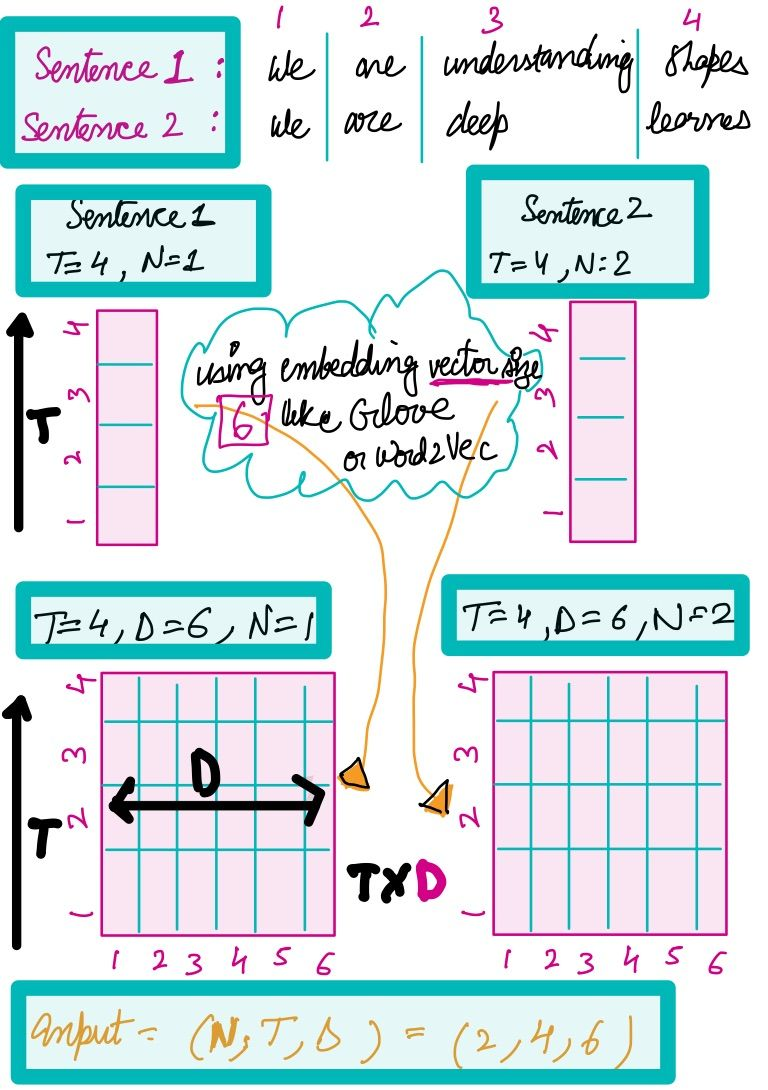 1 2 3 4
Sentence 1 : We are understanding shapes
Sentence 2 : We are deep learnes
Sentence 1
T=4, N=1
Sentence 2
T=4, N=2
4
3
2
1
T
using embedding vector size
6 like Glove
or word2Vec
4
3
2
1
T=4, D=6, N=1
T=4, D=6, N=2
4
3
2
1
T
D
1 2 3 4 5 6
TXD
4
3
2
1
1 2 3 4 5 6
Input = (N, T, D) = (2, 4, 6)